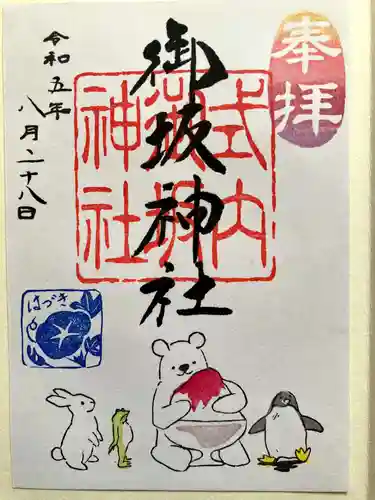 奉拝
式内
御坂
神社
御坂神社
令和五年
八月二十八日
はづき